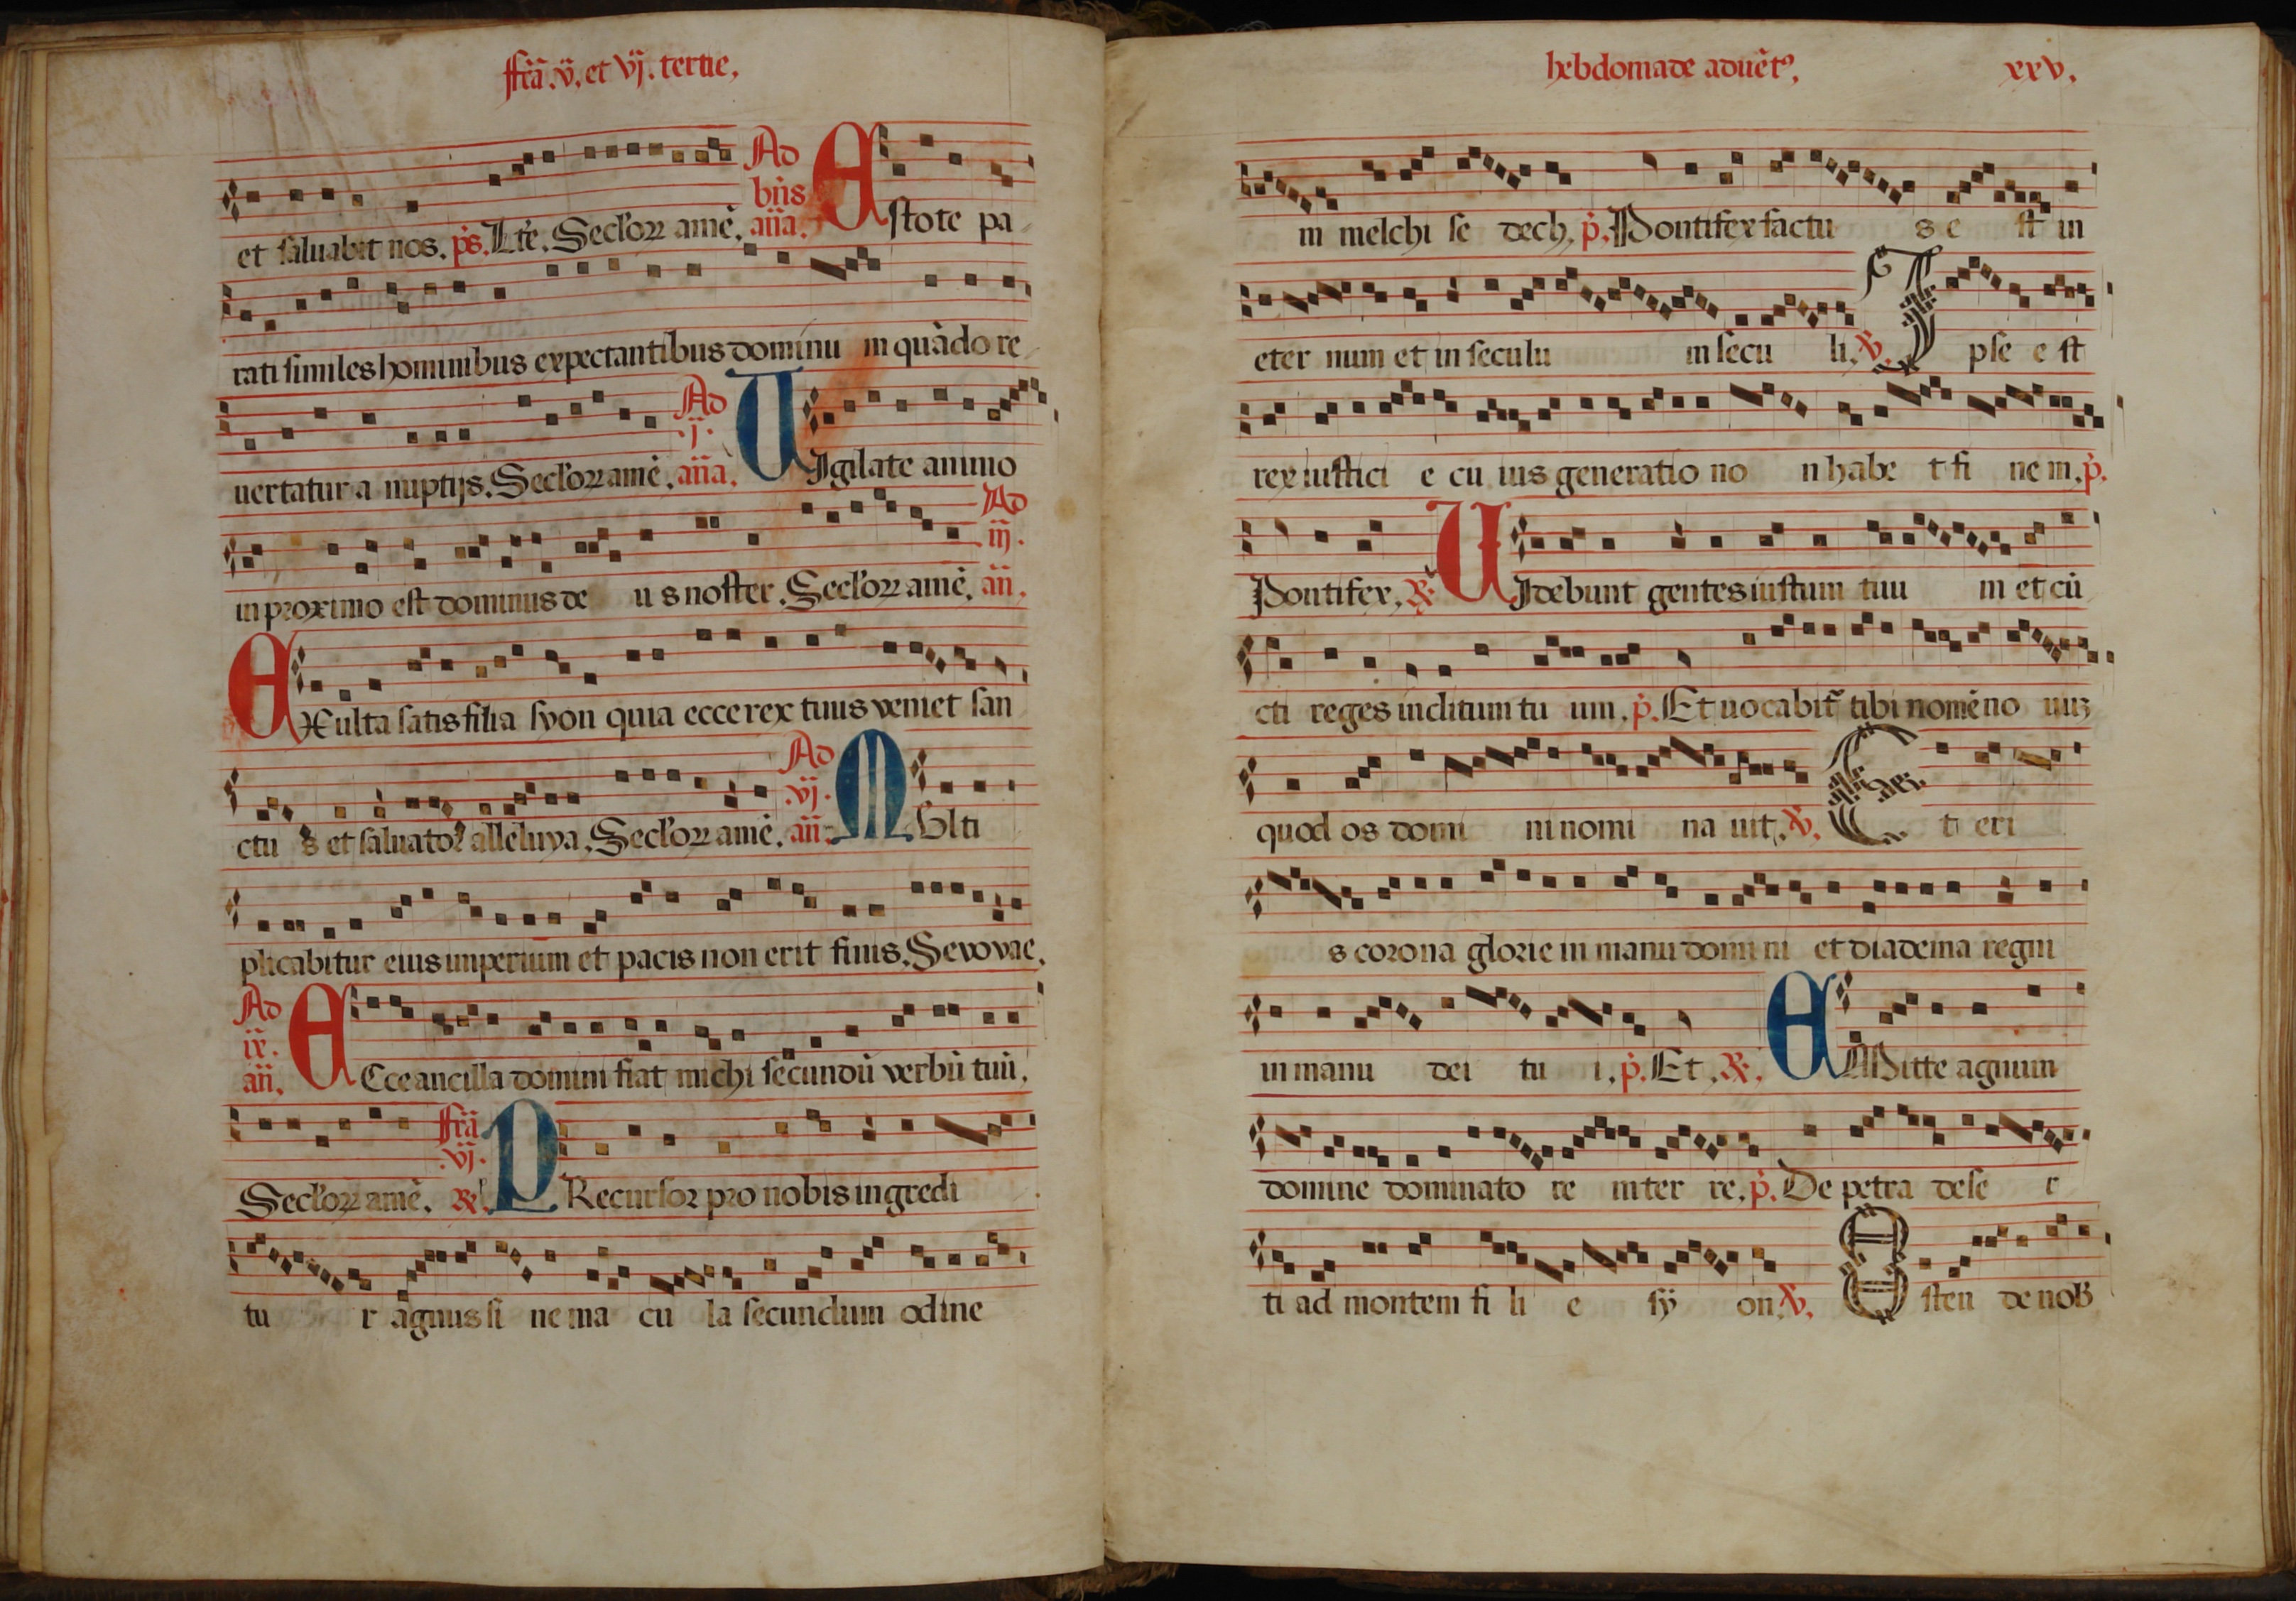 ffrã .v. et vj. tertie,
et saluabit nos. ps. Lre. Sectorz amē. Ad bñs aña. Estote pa
rati similes hominibus expectantibus dominu m quādo re
uertatur a nuptijs. Sectorz amē. Ad .j. aña. UIgilate animo
in proximo est dominus de u s noster. Sectorz amē. Ad .iij. añ.
EXulta satis filia syon quia ecce rex tuus veniet san
ctu s et saluator alleluya. Sectorz amē. Ad .vj. añ. MUlti
plicabitur eius imperium et pacis non erit finis. Sevovae.
Ad .ix. añ. ECce ancilla domini fiat michi secundū verbū tuū.
Sectorz amē. ffrã .vj. R. PRecursor pro nobis ingredi
tu r agnus si ne ma cu la secundum odine
hebdomade aduēt9, xxv.
m melchi se dech. p. Pontifex factu s e st in
eter num et in seculu m secu li. V. I pse e st
rex iustici e cu ius generatio no n habe t fi ne m. p.
Pontifex. R. UIdebunt gentes iustum tuu m et cū
cti reges inclitum tu um. p. Et uocabit~ tibi nomē no uuz
quod os domi ni nomi na uit. V. E t eri
s corona glorie in manu domi ni et diadema regni
in manu dei tu i. p. Et. R. EMitte agnum
domine dominato re m ter re. p. De petra dese r
ti ad montem fi li e sy on. V. O sten de nob